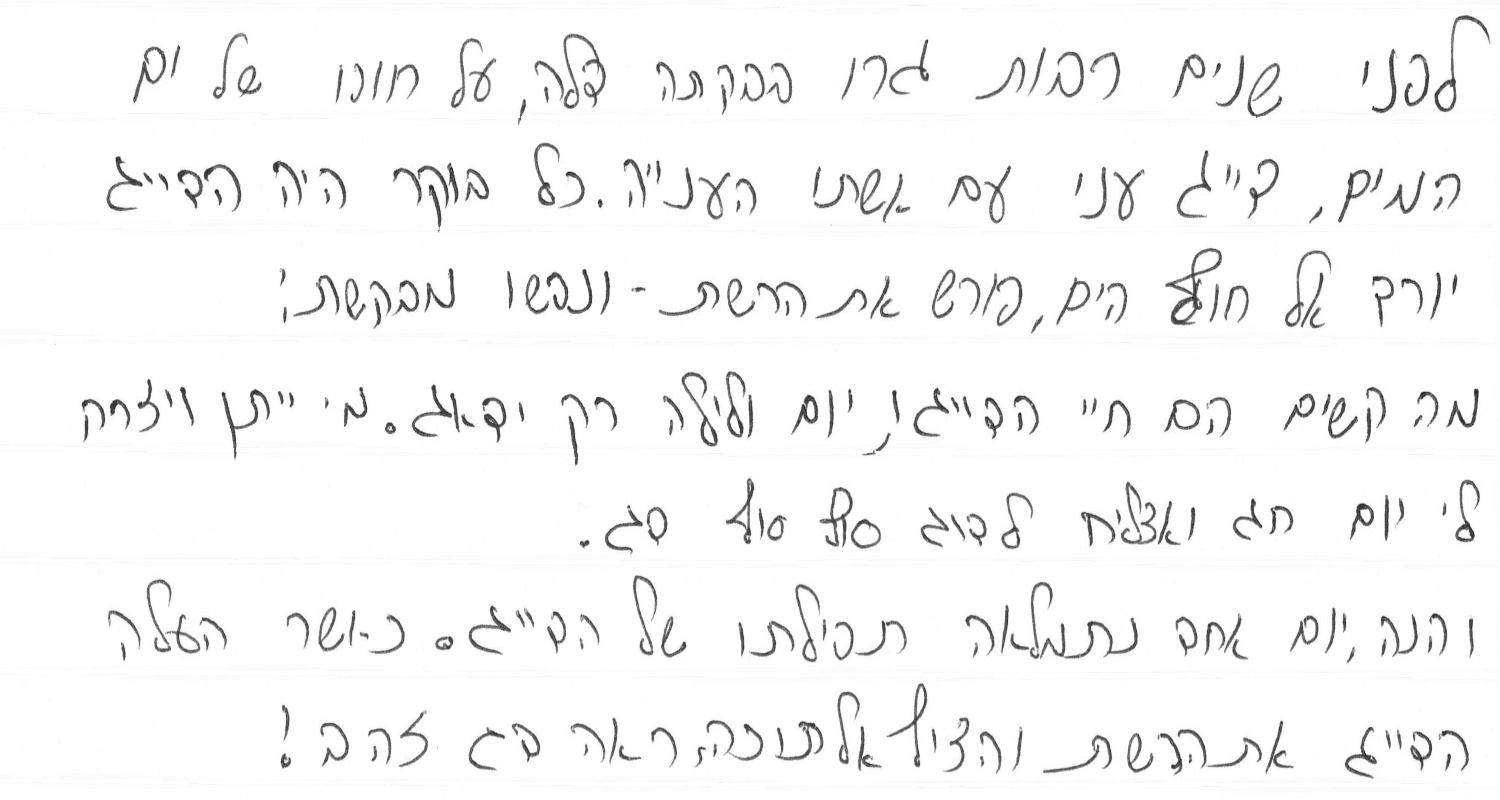 לפני שנים רבות גרו בבקתה דלה, על חופו של ים
המים, דייג עני עם אשתו הענייה. כל בוקר היה הדייג
יורד אל חוף הים, פורש את הרשת - ונפשו מבקשת:
מה קשים הם חיי הדייג!, יום ולילה רק ידאג. מי ייתן ויזרק
לי יום חג ואצליח לדוג סוף סוף דג.
והנה, יום אחד נתמלאה תפילתו של הדייג. כאשר העלה
הדייג את הרשת והציץ אל תוכה, ראה דג זהב!